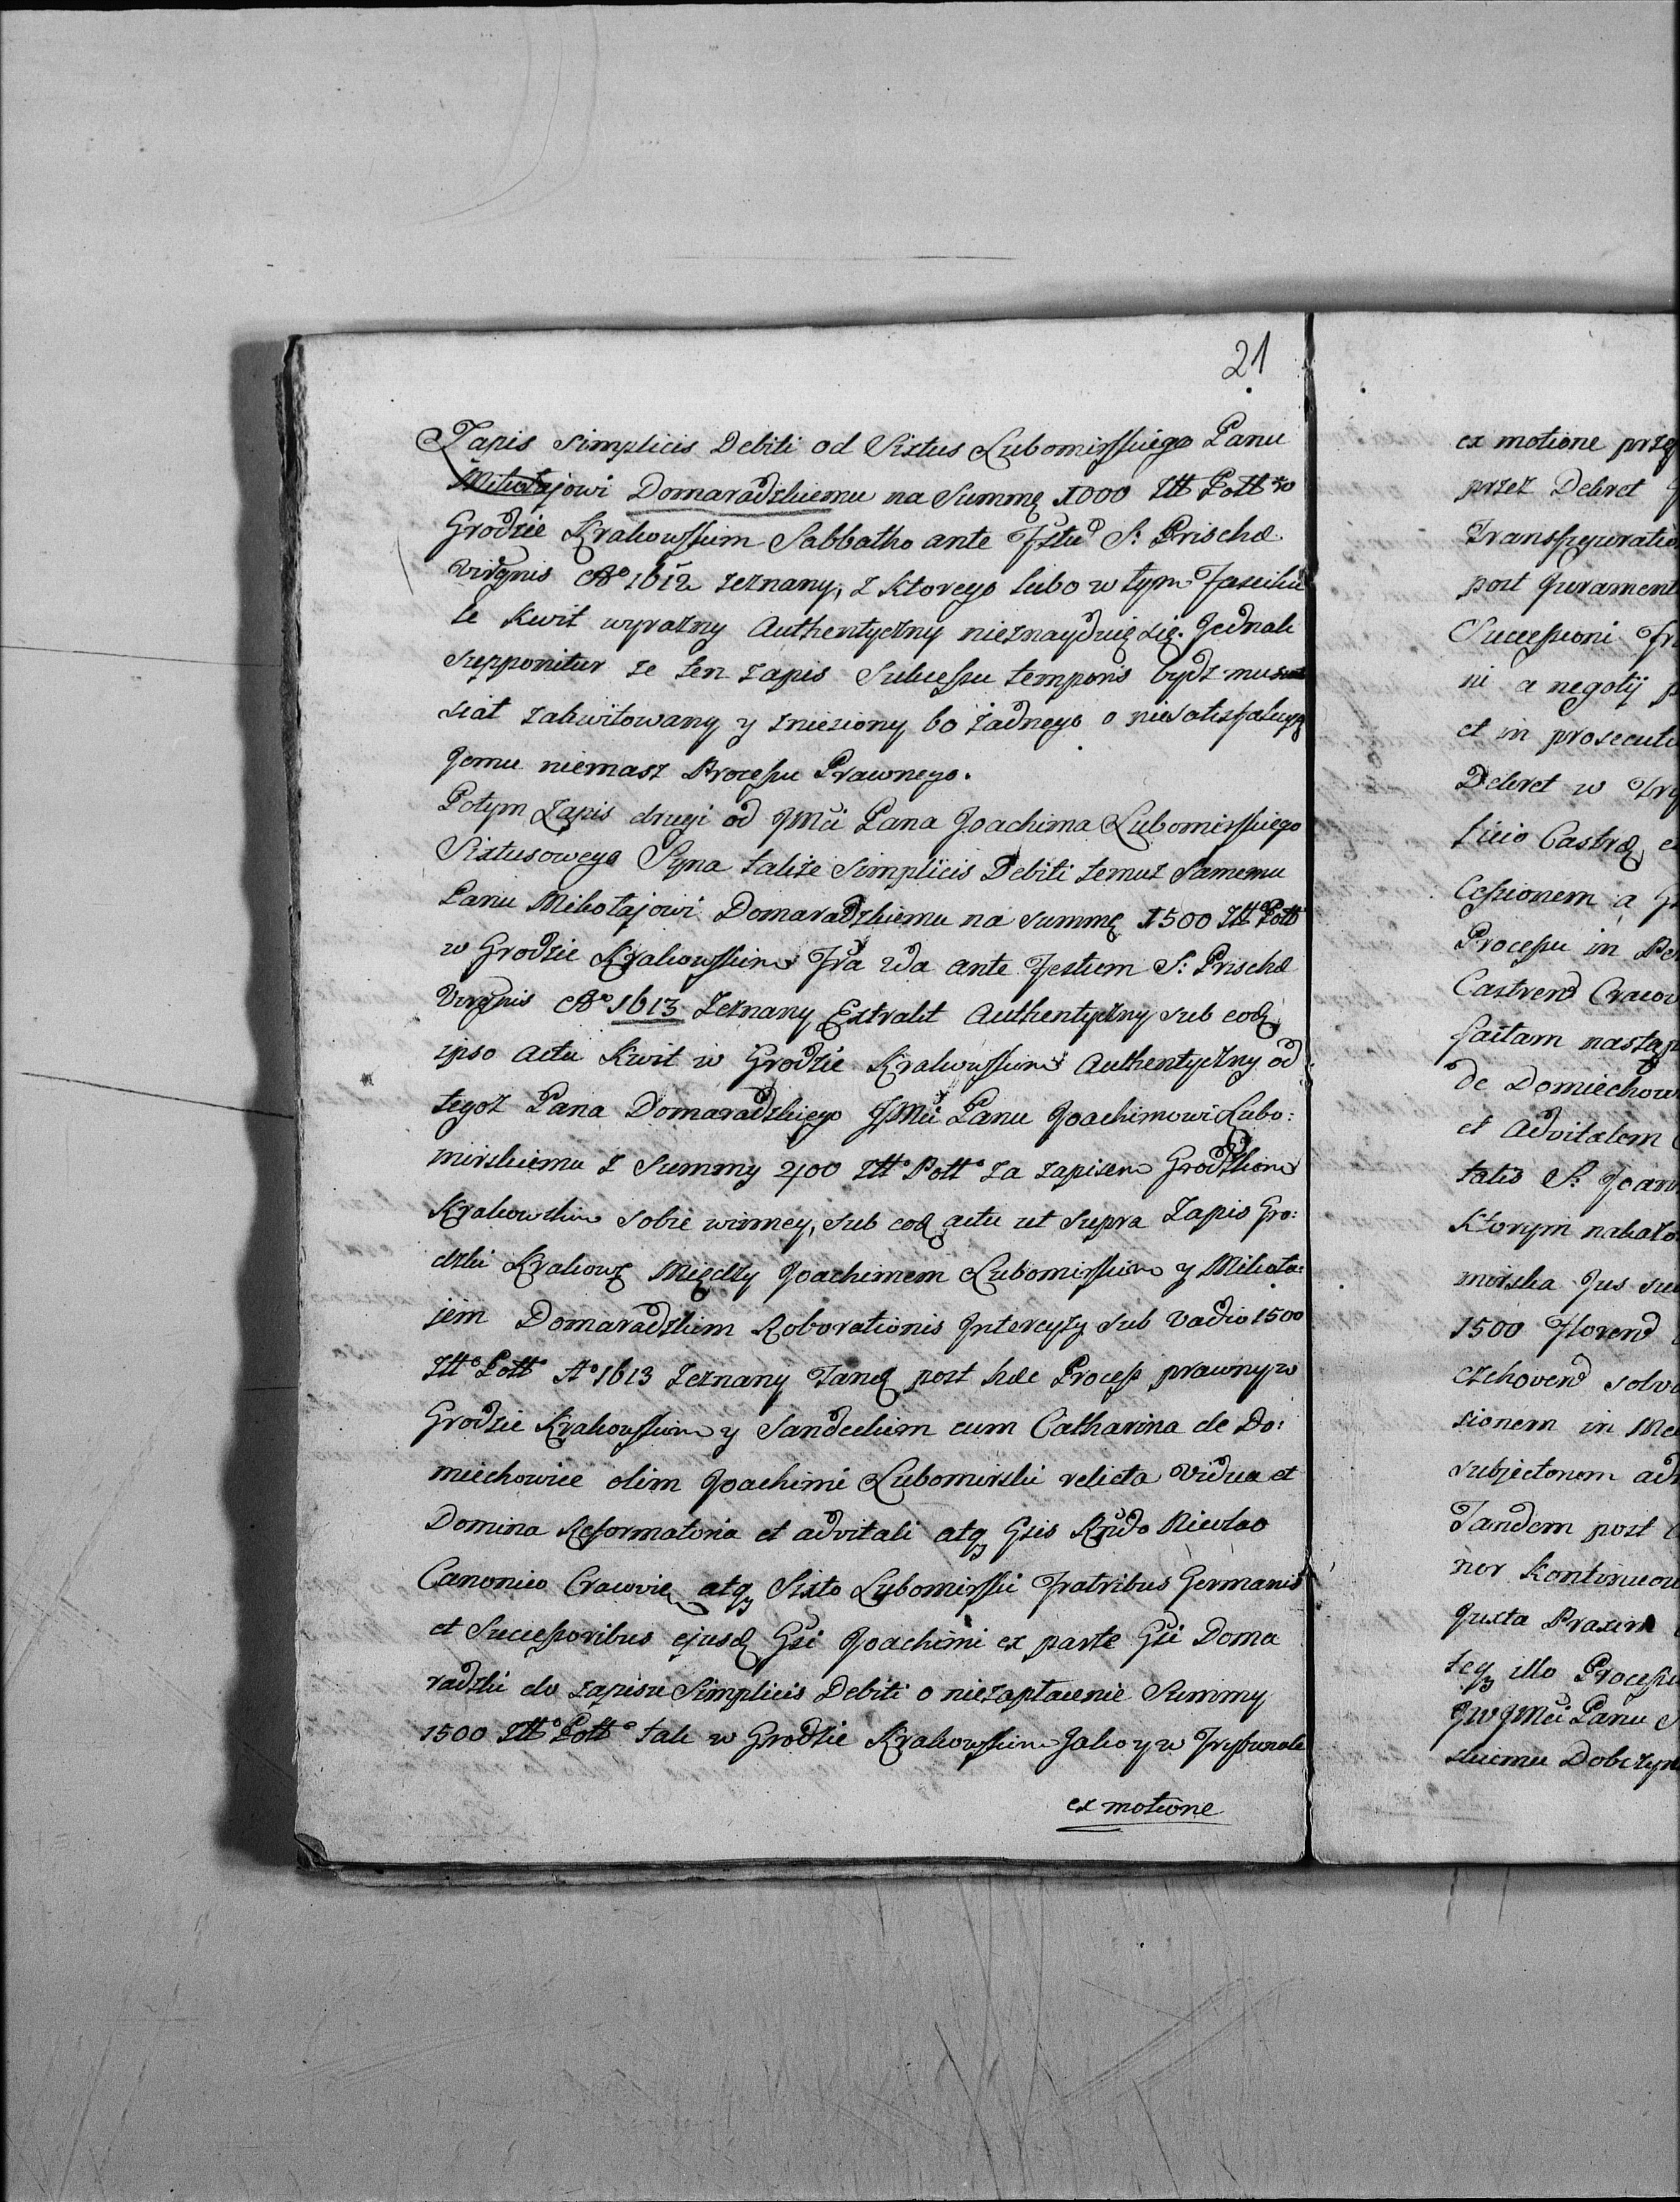 21
Zapis simplicis Debiti od Sixtus Lubomirskiego Panu
Mikołajowi Domaradzkiemu na Summę 1000 Złł Poll w
Grodzie Krakowskim Sabbatho ante Fstu S: Prischæ
Virgnis Ao 1612 zeznany, z ktorego lubo w tym Fasciku
le Kwit wyrazny Authentyczny nieznayduię się. Jednak
supponitur ze ten zapis Sukcessu temporis bydz mu
siał zakwitowany y zniesiony bo żadnego o niesatisfakcyą
Jemu niemasz Processu Prawnego.
Potym Zapis drugi od JMci Pana Joachima Lubomirskiego
Sixtusowego Syna także Simplicis Debiti temuz Samemu
Panu Mikołajowi Domaradzkiemu na summę 1500 Złł Poll
w Grodzie Krakowskim Fra 2da ante Festum S: Prischæ
Virgnis Ao 1613 Zeznany Extrakt Authentyczny sub eodę
ipso actu Kwit w Grodzie Krakowskim Authentyczny od
tegoz Pana Domaradzkiego JMci Panu Joachimowi Lubo:
mirskiemu z Summy 2400 Złł Poll za zapisem Grodzkim
Krakowskim sobie winney, sub eod actu ut supra Zapis Gro:
dzki Krakows Między Joachimem Lubomirskim y Mikoła:
jem Domaradzkim Roborationis Intercyzy sub Vadio 1500
Złł Poll Ao 1613 Zeznany Tand post hæc Process prawny w
Grodzie Krakowskim y Sandeckim cum Catharina de Do:
miechowice olim Joachimi Lubomirski relicta Vidua et
Domina Reformatoria et advitali atq Gsis Rndo Nicolao
Canonico Cracovię atq Sixto Lubomirski Fratribus Germanis
et Successoribus ejusd Gsi Joachimi ex parte Gsi Doma
radzki do zapisu Simplicis Debiti o niezapłacenie Summy
1500 Złł Poll tak w Grodzie Krakowskim Jako y w Trybunale
ex motione
ex motione
przez Dekret
Transfiguratio
post Jurament
Successioni
ni a negotij
et in prosecuti
Dekret w
ticio Castræ
Cessionem a
Processu in
Castrens Cracov
factam nastąp
de Domiechow
et Advitalem
tatis S: Joan
Ktorym nakazo
mirska Jus
1500 Floren
czehoven solv
sionem in
subjectonem
Tandem post
nor Kontinuow
Juxta Praxim
teq illo Processu
JWJMci Panu
skiemu Dobczyn